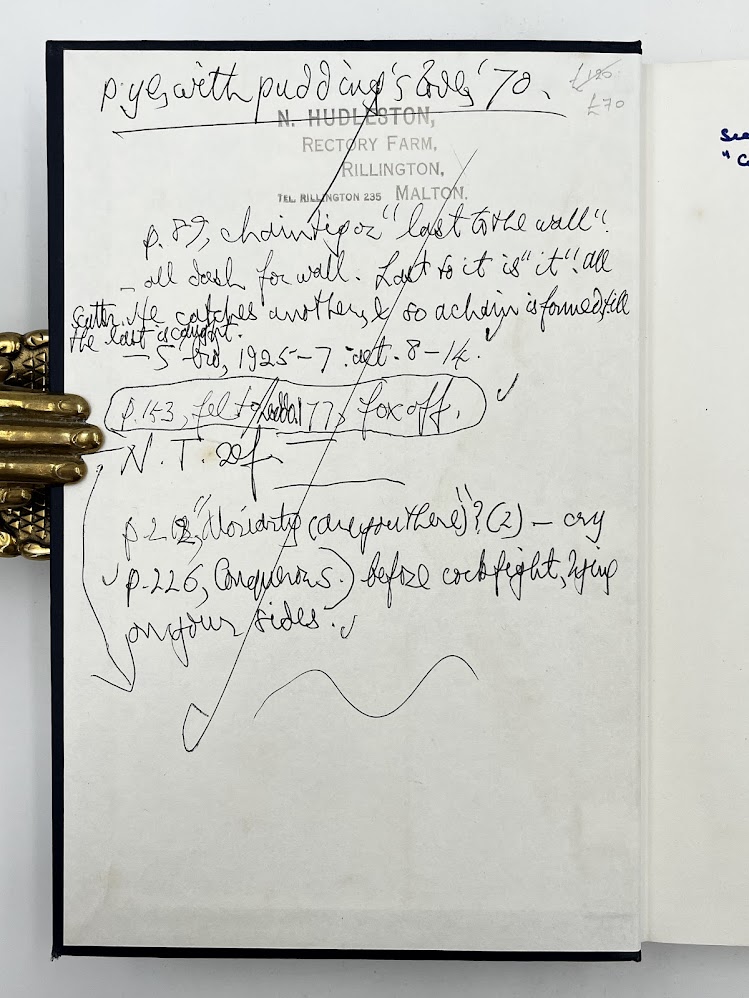 with pudding's '70.
£120
£70
N. HUDLESTON,
RECTORY FARM,
RILLINGTON,
TEL. RILLINGTON 235 MALTON.
p. 89, chain tig or "last to the wall".
– all dash for wall. Last to it is "it". all
scatter. He catches another, & so a chain is formed, till
the last is caught.
1925–7. aet. 8–14.
p. 153, 77, fox off.
N. T.
"Moriarty (are you there)"? (2) – cry
p. 226, Conquerors. before cockfight, lying
on your sides.